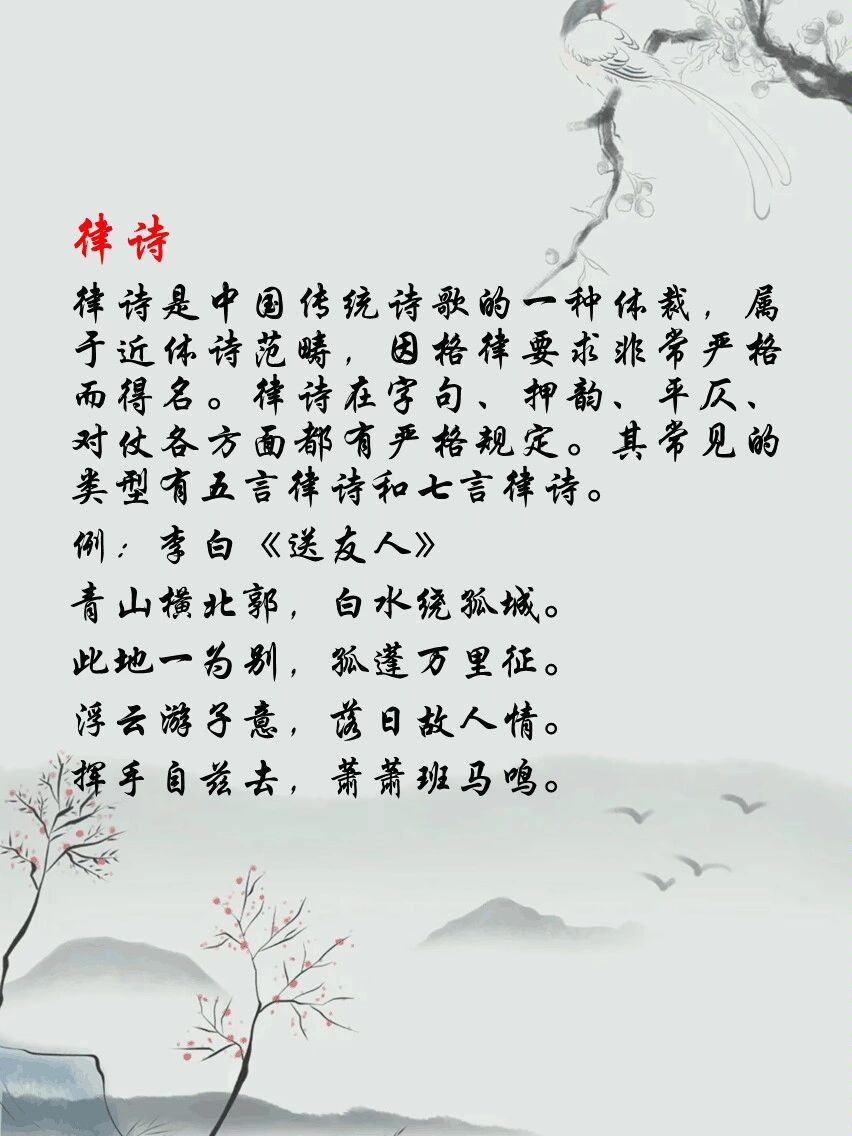 律诗
律诗是中国传统诗歌的一种体裁，属
于近体诗范畴，因格律要求非常严格
而得名。律诗在字句、押韵、平仄、
对仗各方面都有严格规定。其常见的
类型有五言律诗和七言律诗。
例：李白《送友人》
青山横北郭，白水绕孤城。
此地一为别，孤蓬万里征。
浮云游子意，落日故人情。
挥手自兹去，萧萧班马鸣。